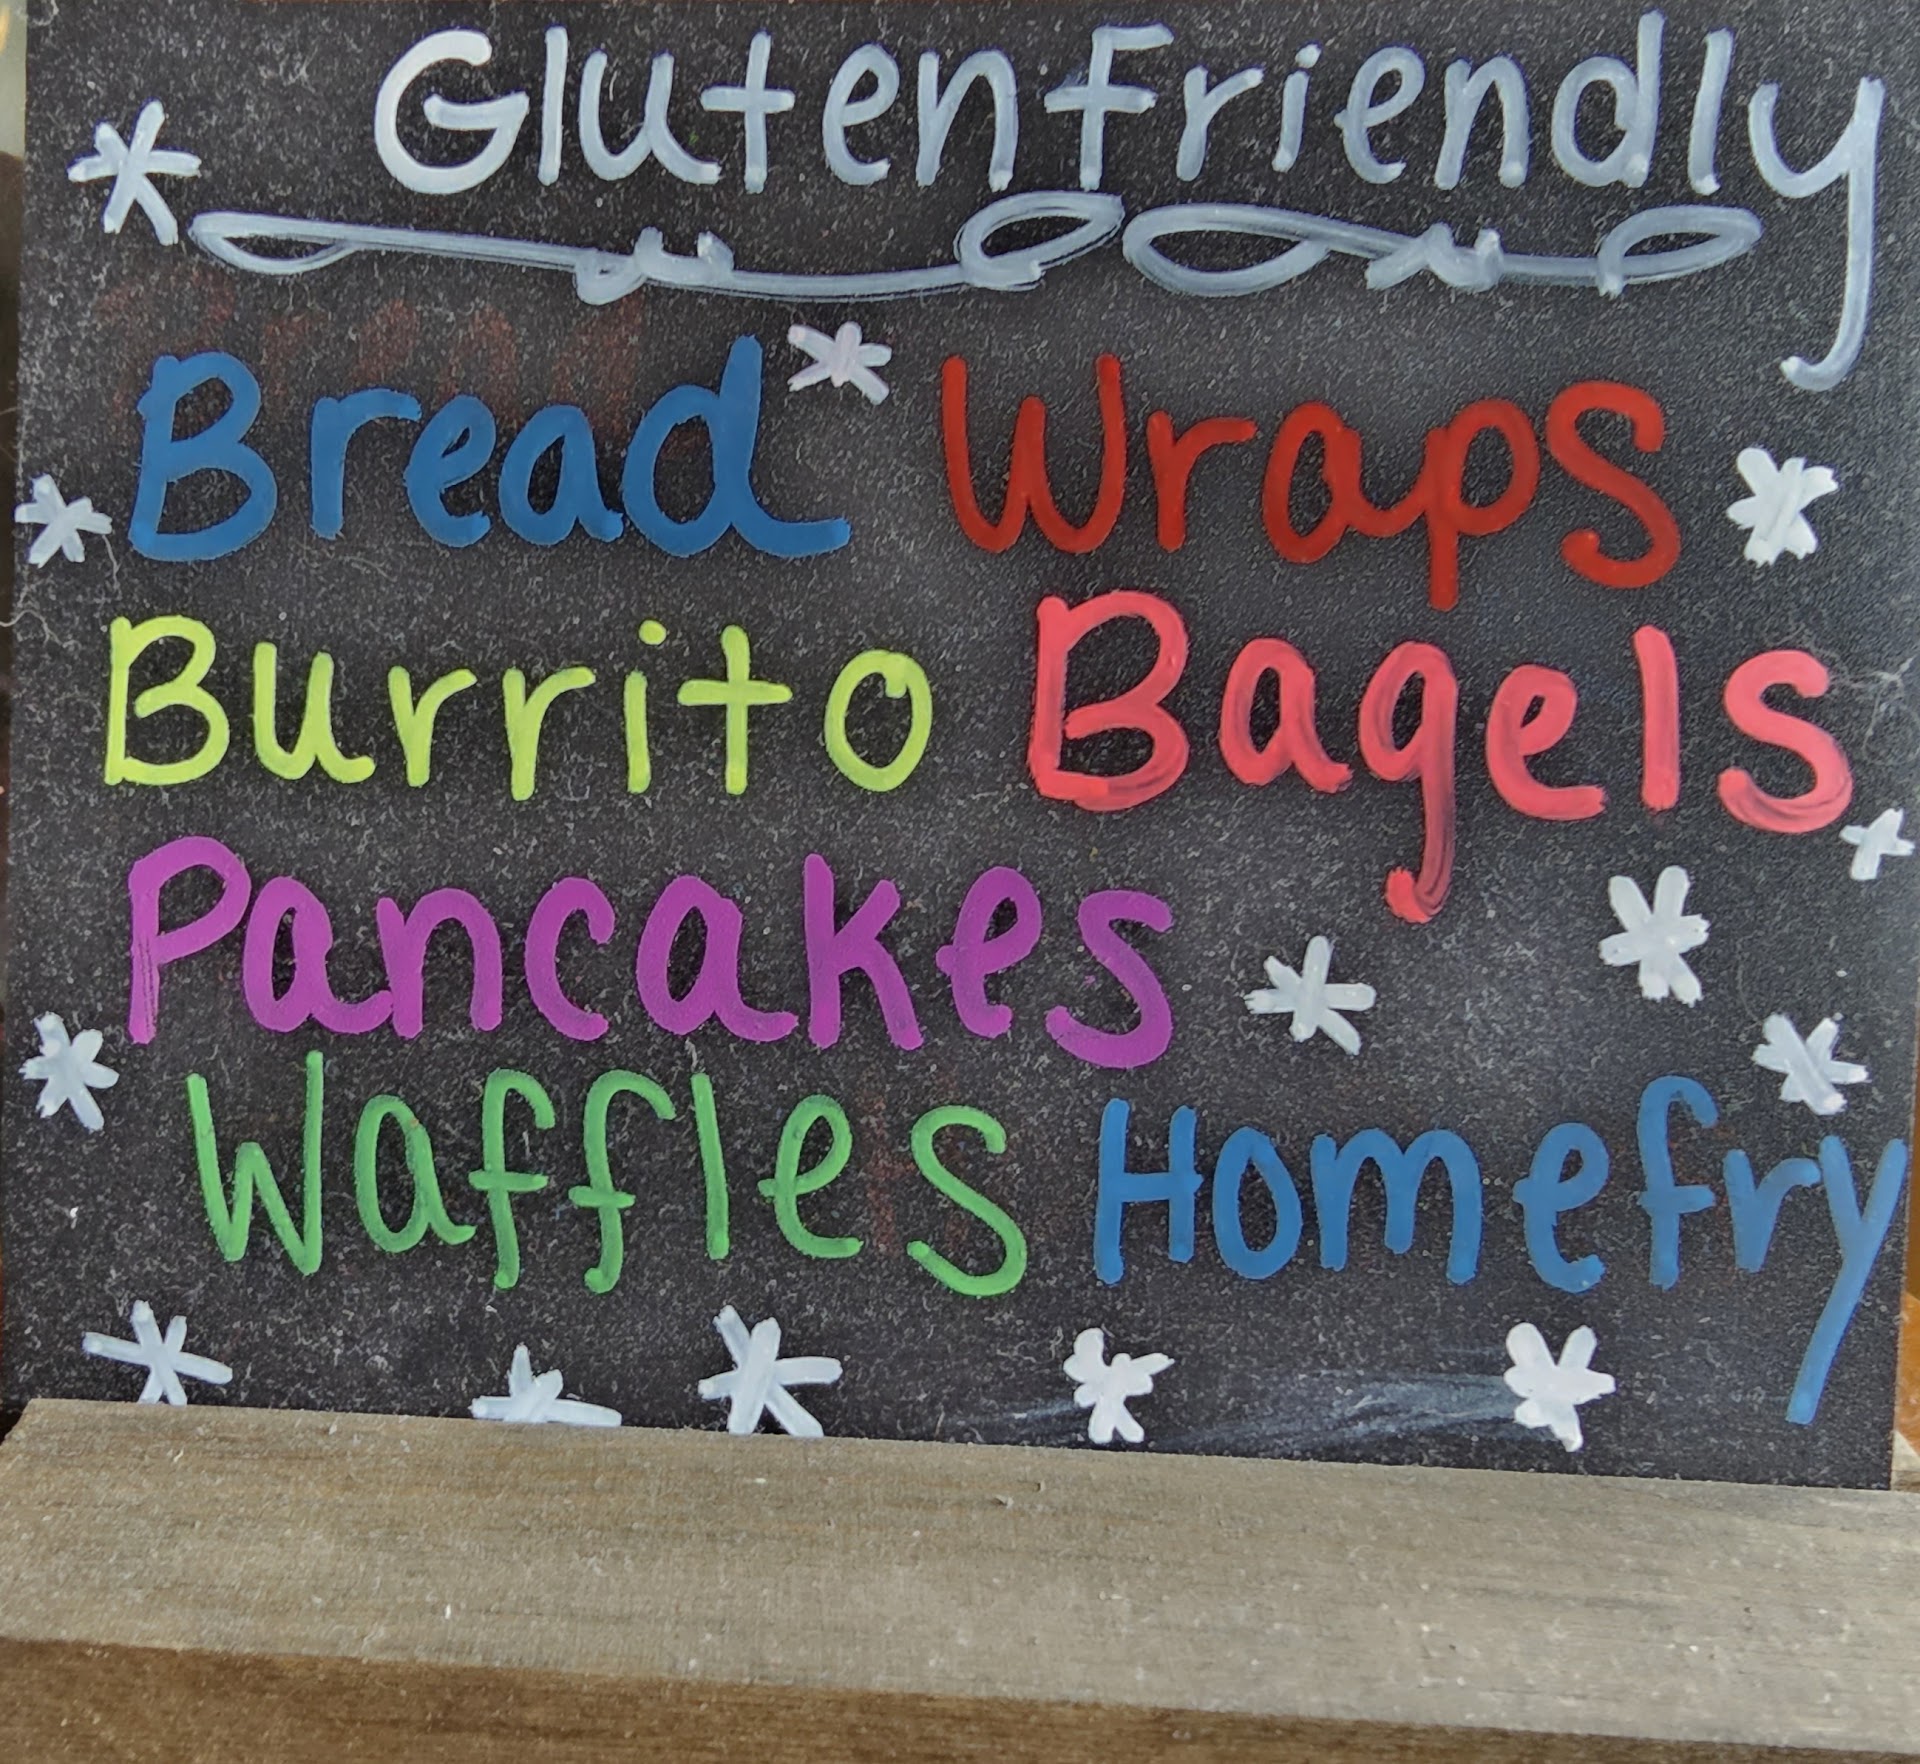 Glutenfriendly
Bread Wraps
Burrito Bagels
Pancakes
Waffles Homefry